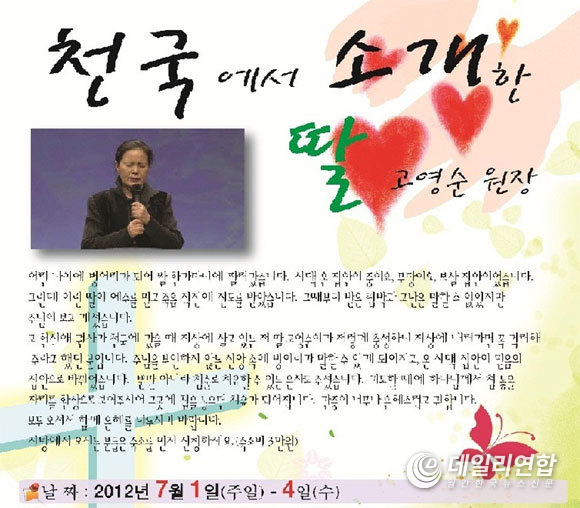 천국에서 소개한
딸 고영순 원장
어린 나이에 벙어리가 되어 쌀 한가마니에 팔려갔습니다. 시댁 온 집안이 중이요, 무당이요, 보살 집안이었습니다.
그런데 이런 딸이 예수를 믿고 죽음 직전에 전도를 받았습니다. 그때부터 받은 핍박과 고난은 말할 수 없었지만
주님이 보고 계셨습니다.
고 현신애 권사가 천국에 갔을 때 지상에 살고 있는 저 딸 고영순이가 저렇게 충성하니 지상에 내려가면 꼭 격려해
주라고 했던 분입니다. 주님을 부인하지 않는 신앙 속에 벙어리가 말할 수 있게 되어지고, 온 시댁 집안이 믿음의
집안으로 바뀌었습니다. 뿐만 아니라 침으로 치유할 수 있는 은사도 주셨습니다. 기도할 때에 하나님께서 침 놓을
자리를 환상으로 보여주시어 그곳에 침을 놓으면 치유가 되어집니다. 간증이 너무나 은혜롭고 귀합니다.
모두 오셔서 함께 은혜를 나누시기 바랍니다.
지방에서 오시는 분들은 숙소를 먼저 신청하세요.(숙소비 3만원)
날 짜 : 2012년 7월 1일(주일) - 4일(수)
데일리연합
월간한국뉴스신문